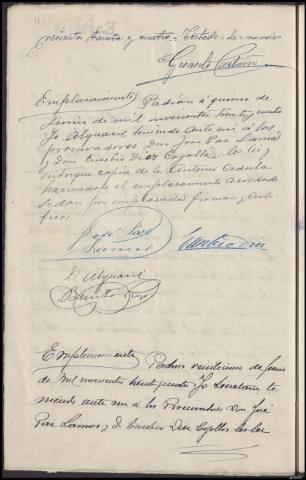 vecientos treinta y cuatro = Testado = de = no vale=
Gerardo Castaño
Emplazamiento Padrón á quince de
Junio de mil novecientos treinta y cuatro
Yo Alguacil teniendo ante mi á los
procuradores Don José Paz Lamas
y Don Eusebio Diez Cogollos les lei y
entregue copia de la anterior Cedula
haciendole el emplazamiento acordado
se dan por emplazados firman y certi-
fico:
José Paz
Lamas Eusebio Diez
El Alguacil
Benito
Emplazamiento Padrón veinticinco de Junio
de mil novecientos treinta y cuatro Yo Secretario te
niendo ante mi a los Procuradores Don José
Paz Lamas y D. Eusebio Diez Cogollos les lei